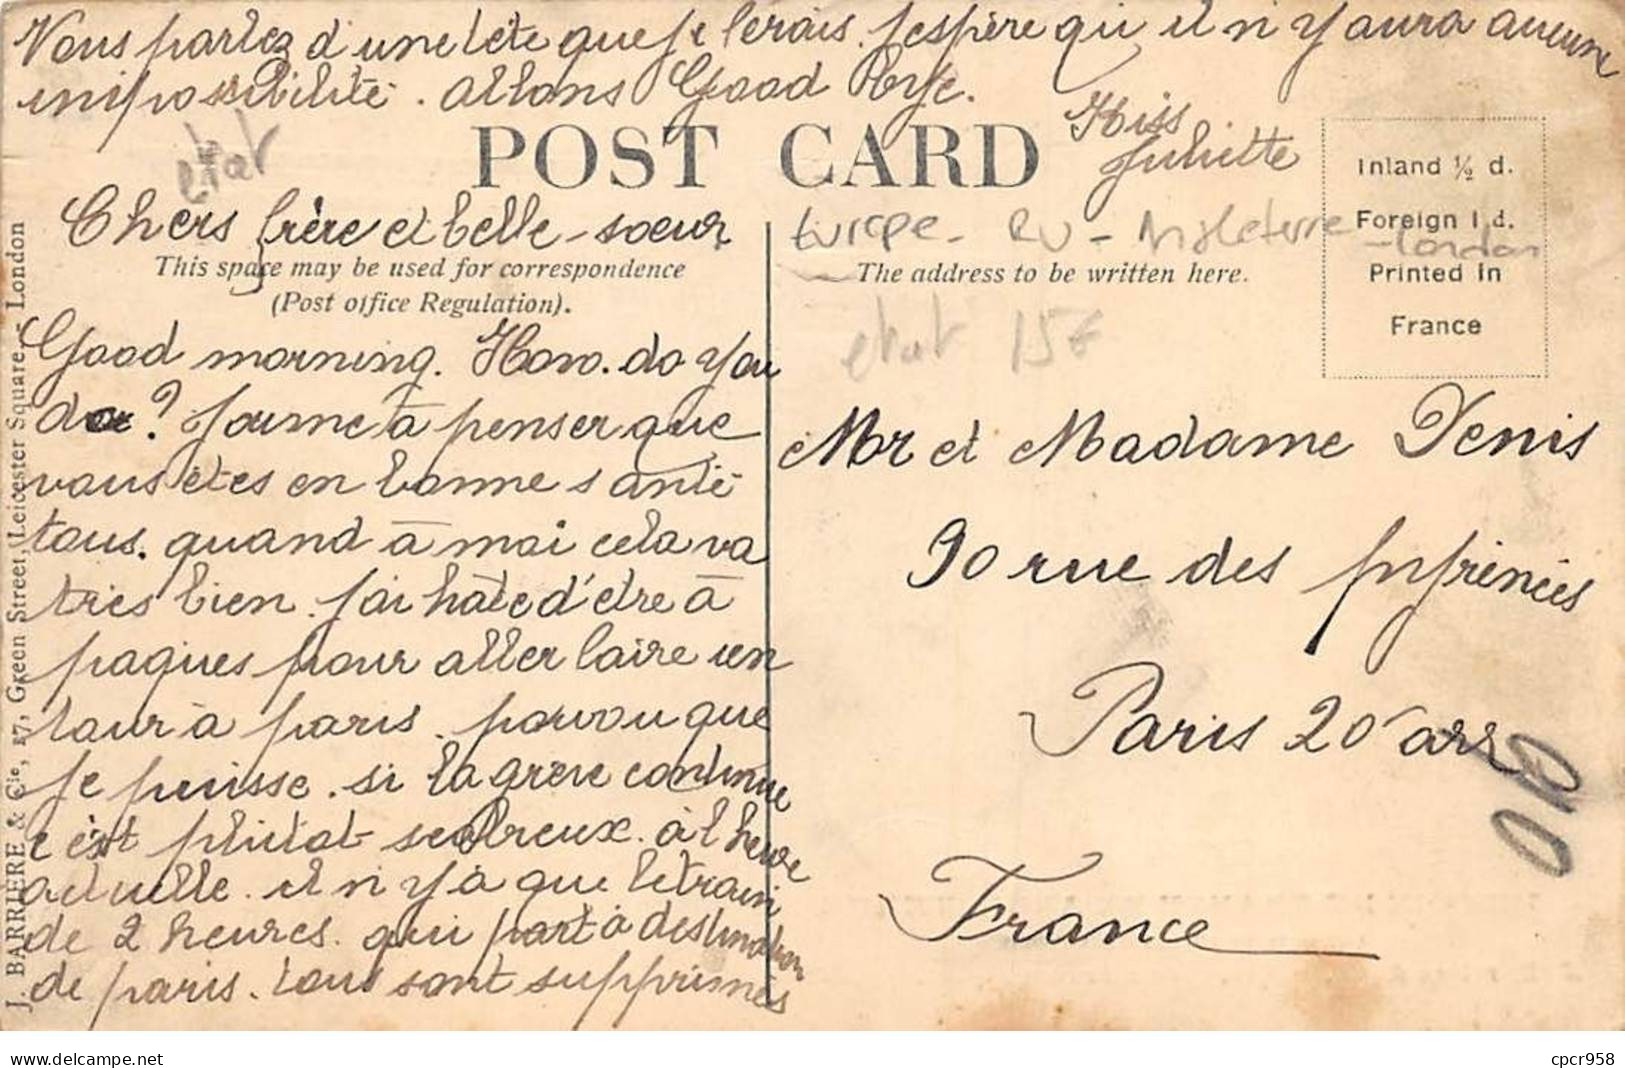 Vous parlez d'une tête que je ferais. j'espère qu il n y aura aucune
impossibilité. allons Good Bye.
Miss
Juliette
état
POST CARD
Inland ½ d.
Foreign 1 d.
Printed in
France
Chers frère et belle-soeur
This space may be used for correspondence
(Post office Regulation).
Europe - RU - Angleterre - London
The address to be written here.
etat 15€
Good morning. How. do you
do? J'aime à penser que
vous êtes en bonne santé
tous. quand à moi cela va
très bien. j'ai hâte d'être à
paques pour aller faire un
tour à paris. pourvou que
je puisse. si la greve continue
c'est plutot scabreux. à l heure
actuelle. il n y à que le train
de 2 heures. qui part à destination
de paris. tous sont supprimés
Mr et Madame Denis
90 rue des pyrénées
Paris 20e arr
France
J. BARRIERE & Cie, 17, Green Street, (Leicester Square) - London
cpcr958